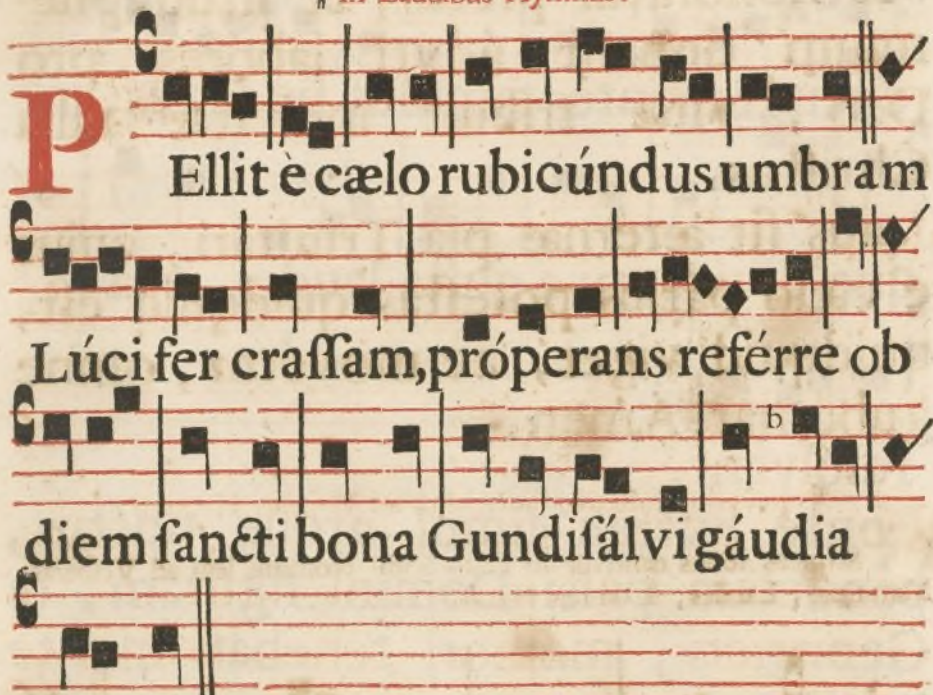 in Laudibus Hymnus.
PEllit è cælo rubicúndus umbram
Lúci fer craſſam, próperans reférre ob
b
diem ſancti bona Gundiſálvi gáudia